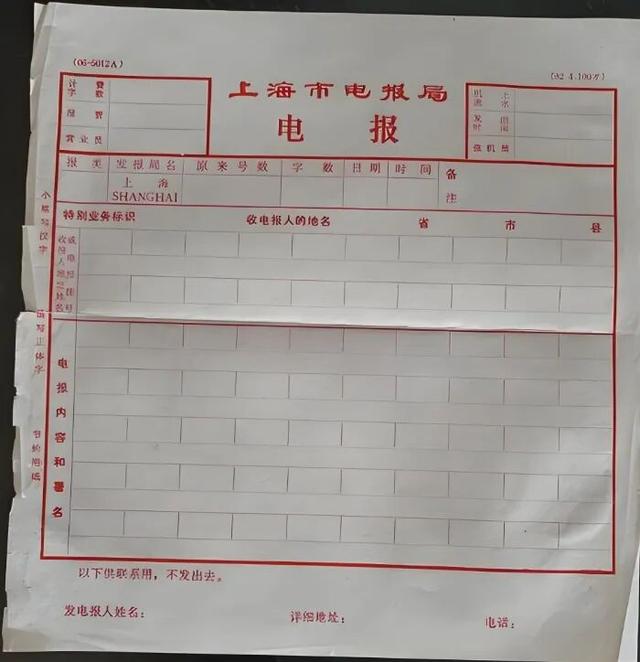 (06-5012A)
(92.4.100万)
上海市电报局
电 报
计费
字数
附费
营业员
机上
流水
发 日
时 间
值机员
报 类 发报局名 原来号数 字 数 日期 时间 备注
上 海
SHANGHAI
特别业务标识 收电报人的地名 省 市 县
收报人地址姓名
或电报挂号
小格写汉字
填写正体字
电报内容和署名
以下供联系用，不发出去。
发电报人姓名： 详细地址： 电话：